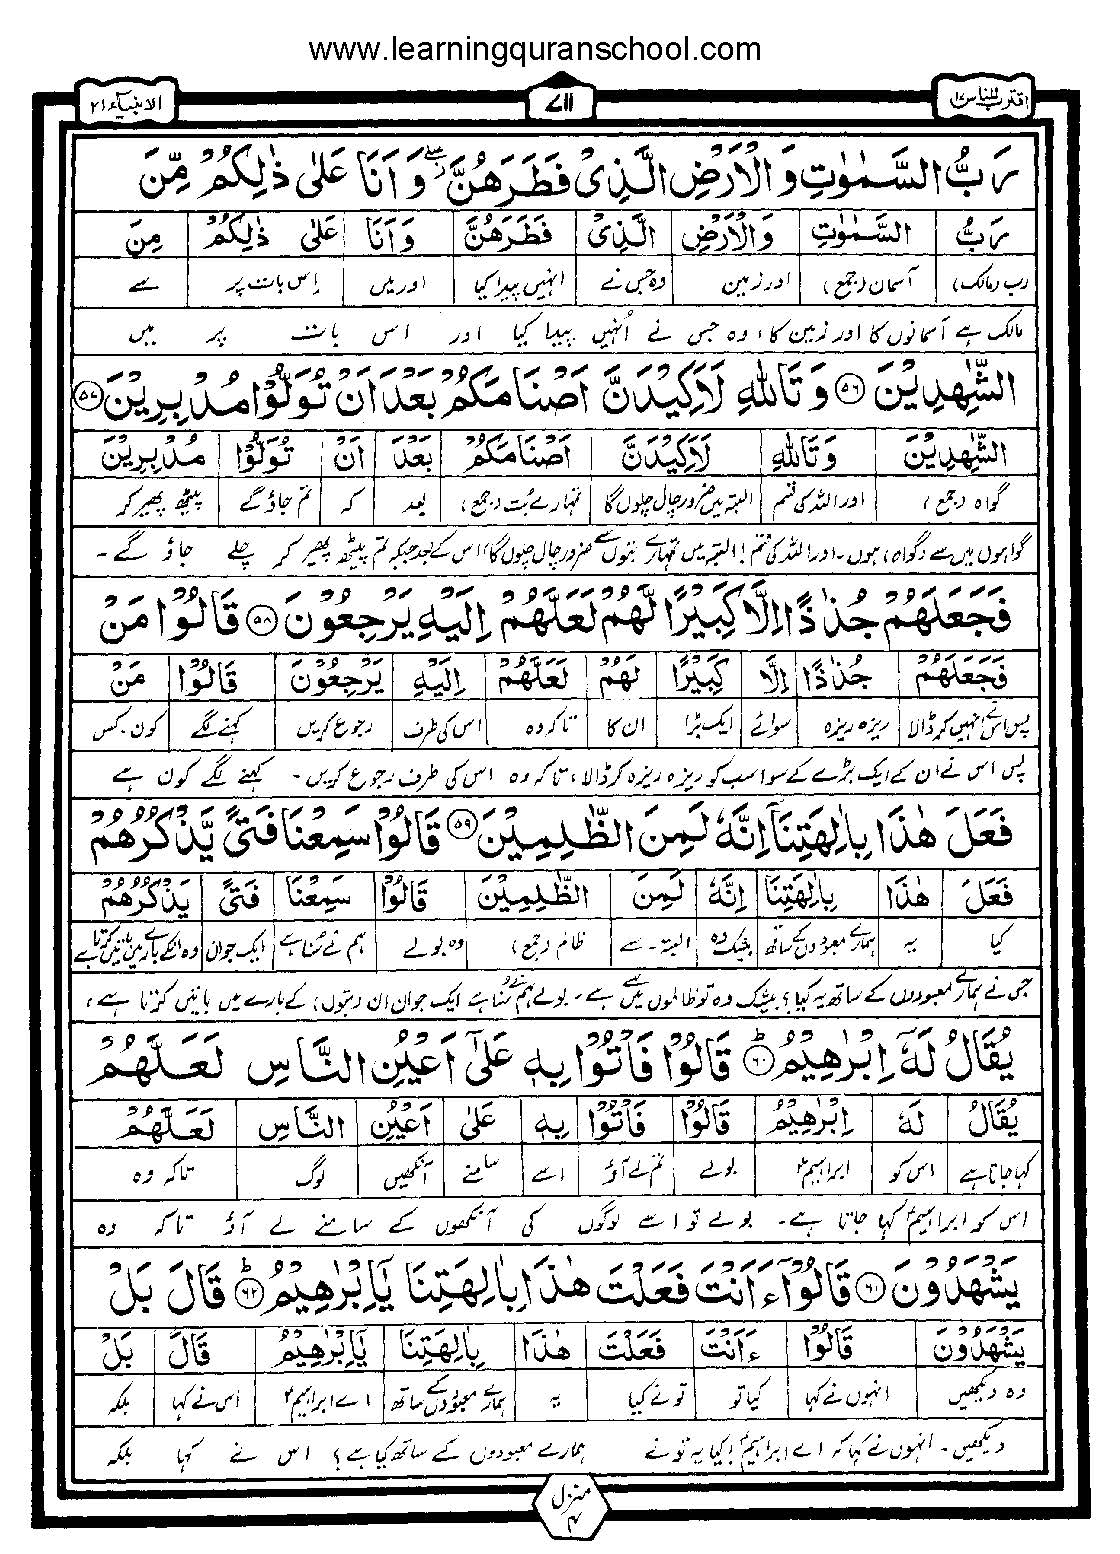 www.learningquranschool.com
اقترب للناس ۱۷
۷۱۱
الانبیاء ۲۱
رَبُّ السَّمٰوٰتِ وَالْاَرْضِ الَّذِیْ فَطَرَهُنَّ ۖ وَاَنَا عَلٰی ذٰلِكُمْ مِّنَ
رَبُّ السَّمٰوٰتِ وَالْاَرْضِ الَّذِیْ فَطَرَهُنَّ وَاَنَا عَلٰی ذٰلِكُمْ مِنَ
رب (مالک) آسمان (جمع) اور زمین وہ جس نے انہیں پیدا کیا اور میں اس بات پر سے
مالک ہے آسمانوں کا اور زمین کا، وہ جس نے اُنہیں پیدا کیا اور اس بات پر میں
الشّٰهِدِیْنَ ۵۶ وَتَاللّٰهِ لَاَكِیْدَنَّ اَصْنَامَكُمْ بَعْدَ اَنْ تُوَلُّوْا مُدْبِرِیْنَ ۵۷
الشّٰهِدِیْنَ وَتَاللّٰهِ لَاَكِیْدَنَّ اَصْنَامَكُمْ بَعْدَ اَنْ تُوَلُّوْا مُدْبِرِیْنَ
گواہ (جمع) اور اللہ کی قسم البتہ میں ضرور چال چلوں گا تمہارے بُت (جمع) بعد کہ تم جاؤ گے پیٹھ پھیر کر
گواہوں میں سے (گواہ) ہوں۔ اور اللہ کی قسم! البتہ میں تمہارے بتوں سے ضرور چال چلوں گا اس کے بعد جبکہ تم پیٹھ پھیر کر چلے جاؤ گے۔
فَجَعَلَهُمْ جُذٰذًا اِلَّا كَبِیْرًا لَّهُمْ لَعَلَّهُمْ اِلَیْهِ یَرْجِعُوْنَ ۵۸ قَالُوْا مَنْ
فَجَعَلَهُمْ جُذٰذًا اِلَّا كَبِیْرًا لَهُمْ لَعَلَّهُمْ اِلَیْهِ یَرْجِعُوْنَ قَالُوْا مَنْ
پس اس نے انہیں کر ڈالا ریزہ ریزہ سوائے ایک بڑا ان کا تاکہ وہ اس کی طرف رجوع کریں کہنے لگے کون۔ کس
پس اس نے ان کے ایک بڑے کے سوا سب کو ریزہ ریزہ کر ڈالا، تاکہ وہ اس کی طرف رجوع کریں۔ کہنے لگے کون ہے
فَعَلَ هٰذَا بِاٰلِهَتِنَاۤ اِنَّهٗ لَمِنَ الظّٰلِمِیْنَ ۵۹ قَالُوْا سَمِعْنَا فَتًی یَّذْكُرُهُمْ
فَعَلَ هٰذَا بِاٰلِهَتِنَا اِنَّهٗ لَمِنَ الظّٰلِمِیْنَ قَالُوْا سَمِعْنَا فَتًی یَذْكُرُهُمْ
کیا یہ ہمارے معبودوں کے ساتھ بیشک وہ البتہ۔ سے ظالم (جمع) وہ بولے ہم نے سُنا ہے ایک جوان وہ انکے بارے میں باتیں کرتا ہے
جس نے ہمارے معبودوں کے ساتھ یہ کیا؟ بیشک وہ تو ظالموں میں سے ہے۔ بولے ہم نے سُنا ہے ایک جوان ان (بتوں) کے بارے میں باتیں کرتا ہے،
یُقَالُ لَهٗۤ اِبْرٰهِیْمُ ۶۰ قَالُوْا فَاْتُوْا بِهٖ عَلٰۤی اَعْیُنِ النَّاسِ لَعَلَّهُمْ
یُقَالُ لَهٗ اِبْرٰهِیْمُ قَالُوْا فَاْتُوْا بِهٖ عَلٰی اَعْیُنِ النَّاسِ لَعَلَّهُمْ
کہا جاتا ہے اس کو ابراہیمؑ بولے تم لے آؤ اسے سامنے آنکھیں لوگ تاکہ وہ
اس کو ابراہیمؑ کہا جاتا ہے۔ بولے تو اسے لوگوں کی آنکھوں کے سامنے لے آؤ تاکہ وہ
یَشْهَدُوْنَ ۶۱ قَالُوْۤا ءَاَنْتَ فَعَلْتَ هٰذَا بِاٰلِهَتِنَا یٰۤاِبْرٰهِیْمُ ۶۲ قَالَ بَلْ
یَشْهَدُوْنَ قَالُوْا ءَاَنْتَ فَعَلْتَ هٰذَا بِاٰلِهَتِنَا یٰۤاِبْرٰهِیْمُ قَالَ بَلْ
وہ دیکھیں انہوں نے کہا کیا تو تو نے کیا یہ ہمارے معبودوں کے ساتھ اے ابراہیمؑ اس نے کہا بلکہ
دیکھیں۔ انہوں نے کہا کہ اے ابراہیمؑ! کیا یہ تو نے ہمارے معبودوں کے ساتھ کیا ہے؟ اس نے کہا بلکہ
منزل ۴